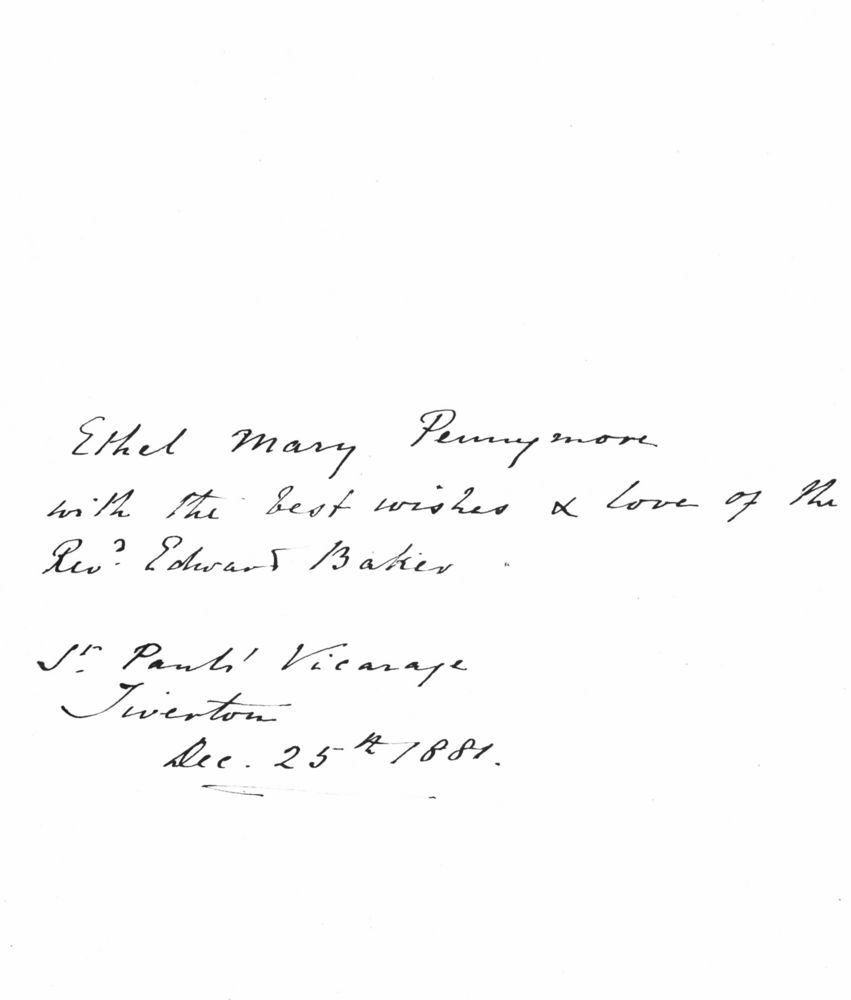 Ethel Mary Pennymore
with the best wishes & love of the
Revd. Edward Baker
St. Pauls' Vicarage
Tiverton
Dec. 25th 1881.